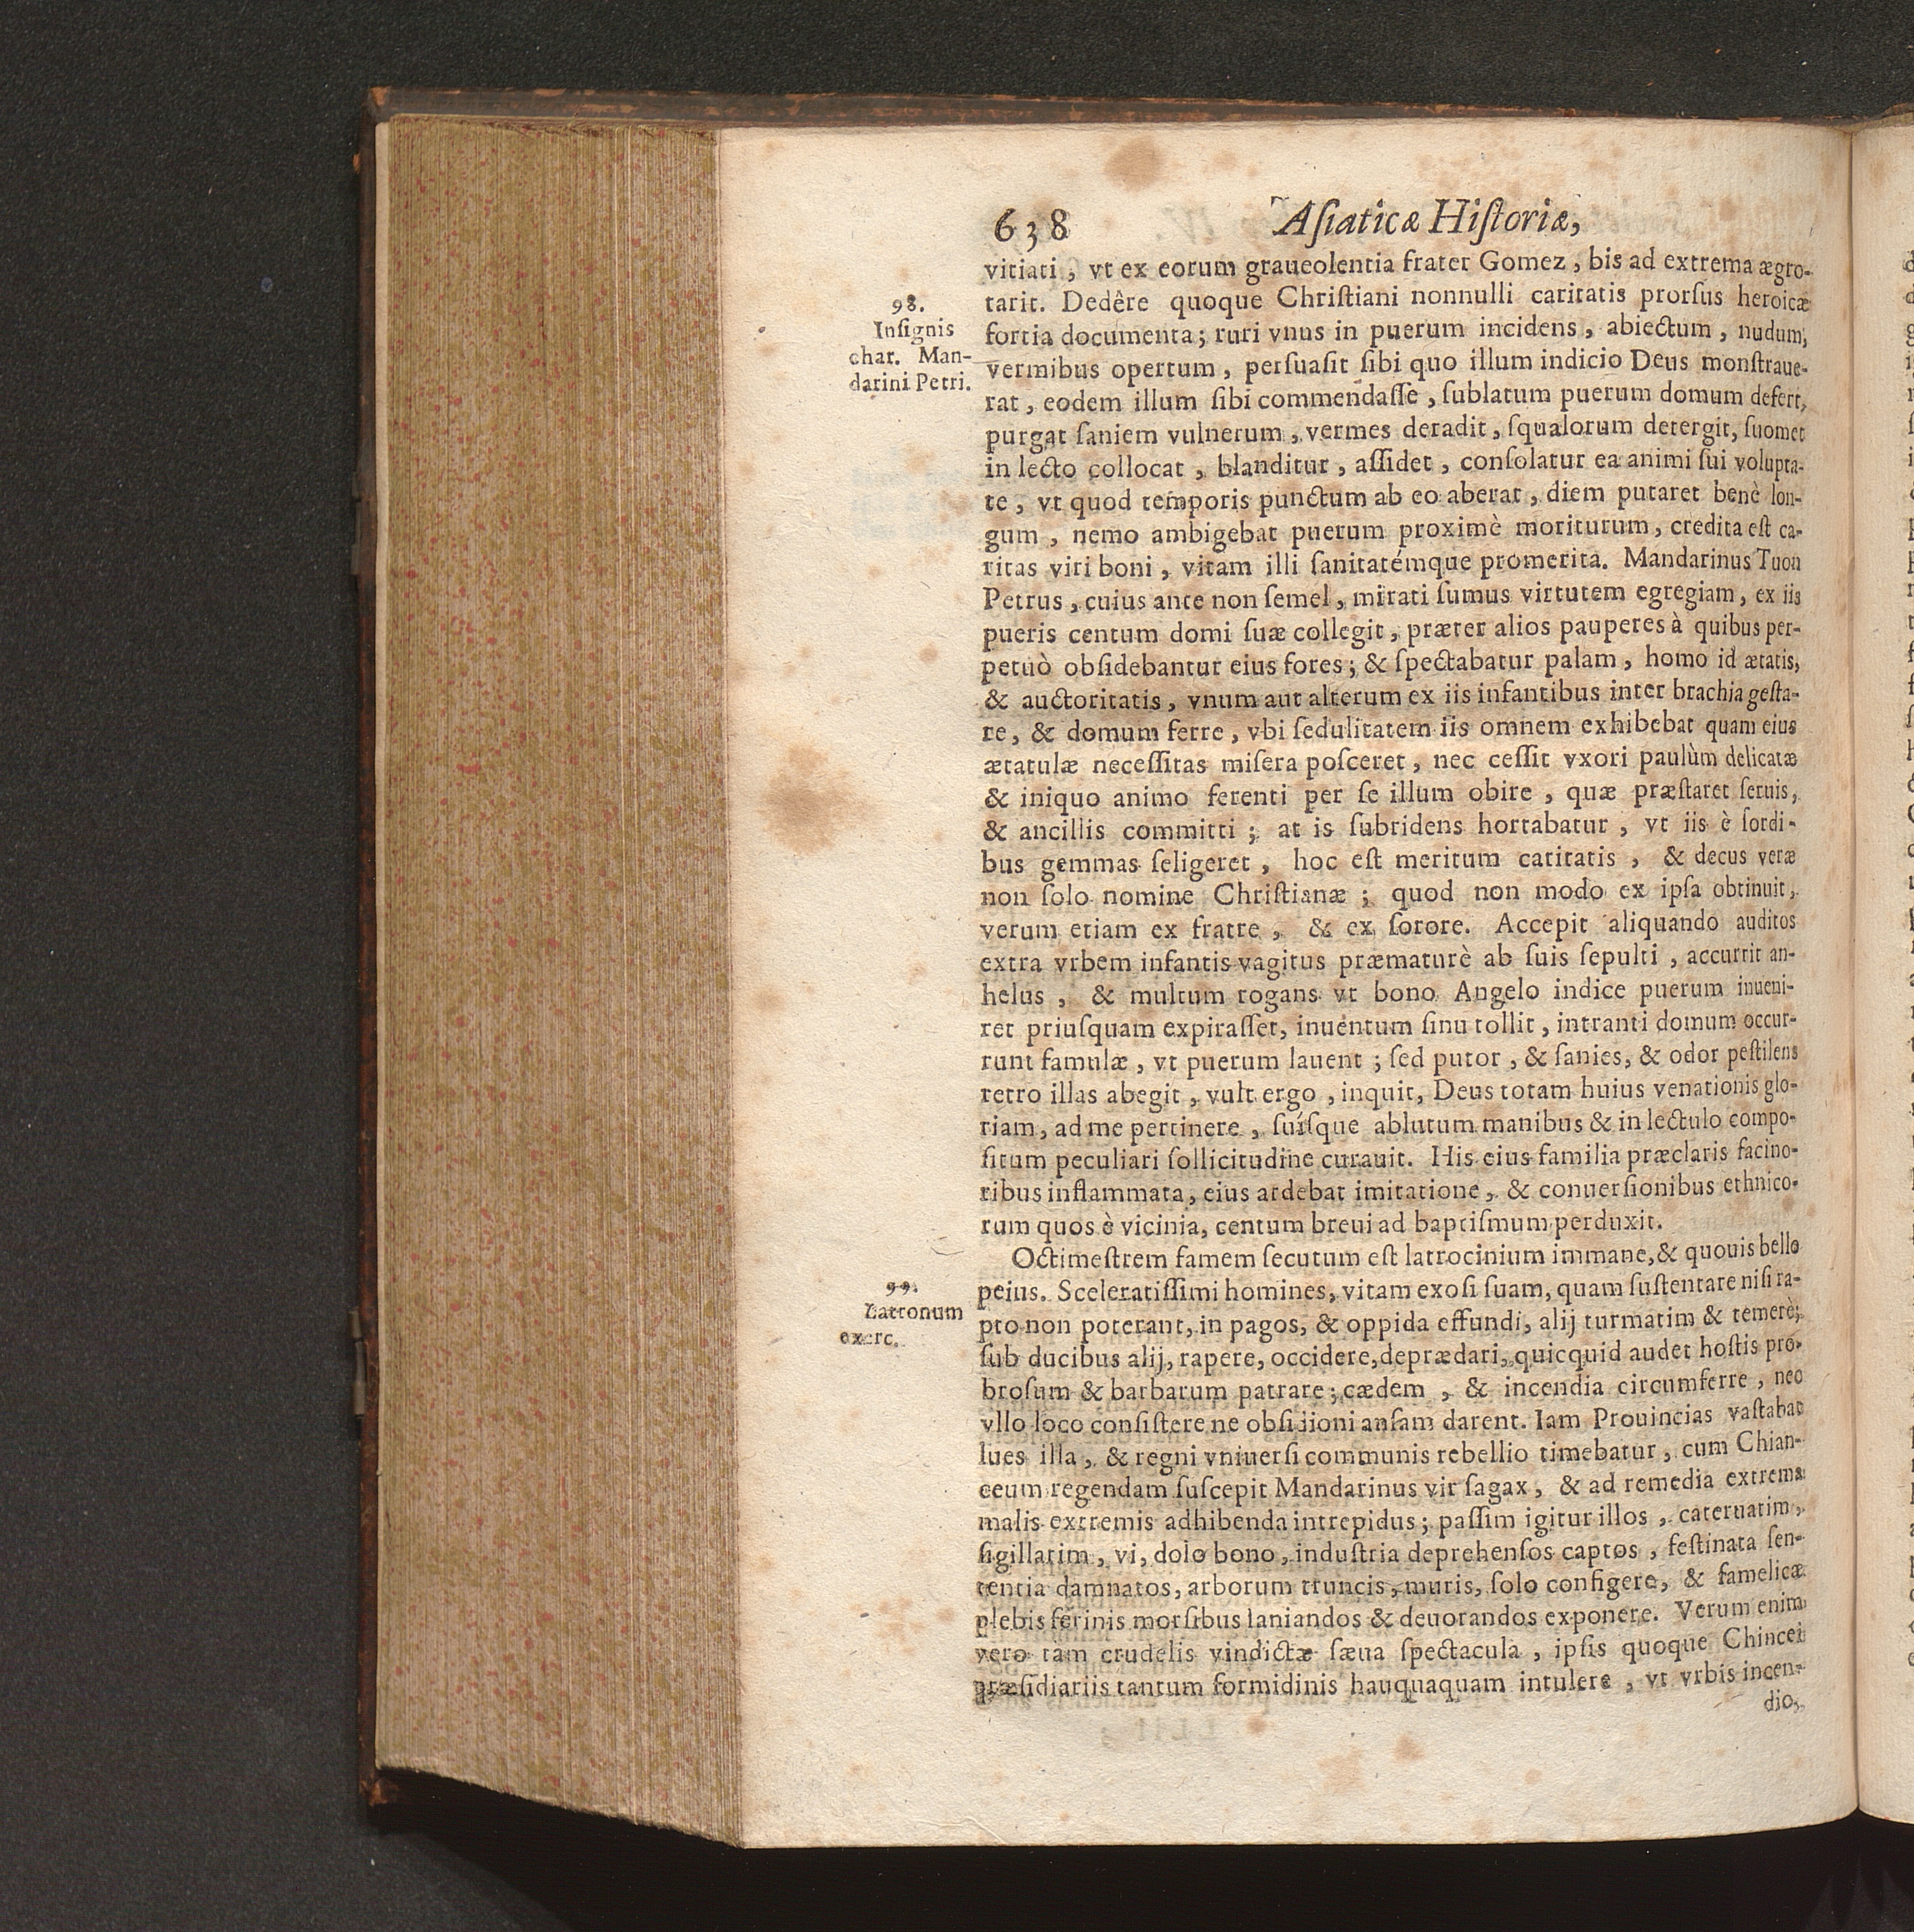 638 Asiaticæ Historiæ,
vitiati, vt ex eorum graueolentia frater Gomez, bis ad extrema ægro-
98.
Insignis
char. Man-
darini Petri.
tarit. Dedêre quoque Christiani nonnulli caritatis prorsus heroicæ
fortia documenta; ruri vnus in puerum incidens, abiectum, nudum,
vermibus opertum, persuasit sibi quo illum indicio Deus monstraue-
rat, eodem illum sibi commendasse, sublatum puerum domum defert,
purgat saniem vulnerum, vermes deradit, squalorum detergit, suomet
in lecto collocat, blanditur, assidet, consolatur ea animi sui volupta-
te, vt quod temporis punctum ab eo aberat, diem putaret benè lon-
gum, nemo ambigebat puerum proximè moriturum, credita est ca-
ritas viri boni, vitam illi sanitatémque promerita. Mandarinus Tuon
Petrus, cuius ante non semel, mirati sumus virtutem egregiam, ex iis
pueris centum domi suæ collegit, præter alios pauperes à quibus per-
petuò obsidebantur eius fores; & spectabatur palam, homo id ætatis,
& auctoritatis, vnum aut alterum ex iis infantibus inter brachia gesta-
re, & domum ferre, vbi sedulitatem iis omnem exhibebat quam eius
ætatulæ necessitas misera posceret, nec cessit vxori paulùm delicatæ
& iniquo animo ferenti per se illum obire, quæ præstaret seruis,
& ancillis committi; at is subridens hortabatur, vt iis è sordi-
bus gemmas seligeret, hoc est meritum caritatis, & decus veræ
non solo nomine Christianæ; quod non modo ex ipsa obtinuit,
verum etiam ex fratre, & ex sorore. Accepit aliquando auditos
extra vrbem infantis vagitus præmaturè ab suis sepulti, accurrit an-
helus, & multum rogans vt bono Angelo indice puerum inueni-
ret priusquam expirasset, inuentum sinu tollit, intranti domum occur-
runt famulæ, vt puerum lauent; sed putor, & sanies, & odor pestilens
retro illas abegit, vult ergo, inquit, Deus totam huius venationis glo-
riam, ad me pertinere, suísque ablutum manibus & in lectulo compo-
situm peculiari sollicitudine curauit. His eius familia præclaris facino-
ribus inflammata, eius ardebat imitatione, & conuersionibus ethnico-
rum quos è vicinia, centum breui ad baptismum perduxit.
Octimestrem famem secutum est latrocinium immane, & quouis bello
99.
Latronum
exerc.
peius. Sceleratissimi homines, vitam exosi suam, quam sustentare nisi ra-
pto non poterant, in pagos, & oppida effundi, alij turmatim & temerè;
sub ducibus alij, rapere, occidere, deprædari, quicquid audet hostis pro-
brosum & barbarum patrare; cædem, & incendia circumferre, neo
vllo loco consistere ne obsidioni ansam darent. Iam Prouincias vastabat
lues illa, & regni vniuersi communis rebellio timebatur, cum Chian-
ceum regendam suscepit Mandarinus vir sagax, & ad remedia extrema
malis extremis adhibenda intrepidus; passim igitur illos, cateruatim,
sigillatim, vi, dolo bono, industria deprehensos captos, festinata sen-
tentia damnatos, arborum truncis, muris, solo configere, & famelicæ
plebis ferinis morsibus laniandos & deuorandos exponere. Verum enim
vero tam crudelis vindictæ sæua spectacula, ipsis quoque Chincei
præsidiariis tantum formidinis hauquaquam intulere, vt vrbis incen-
dio,